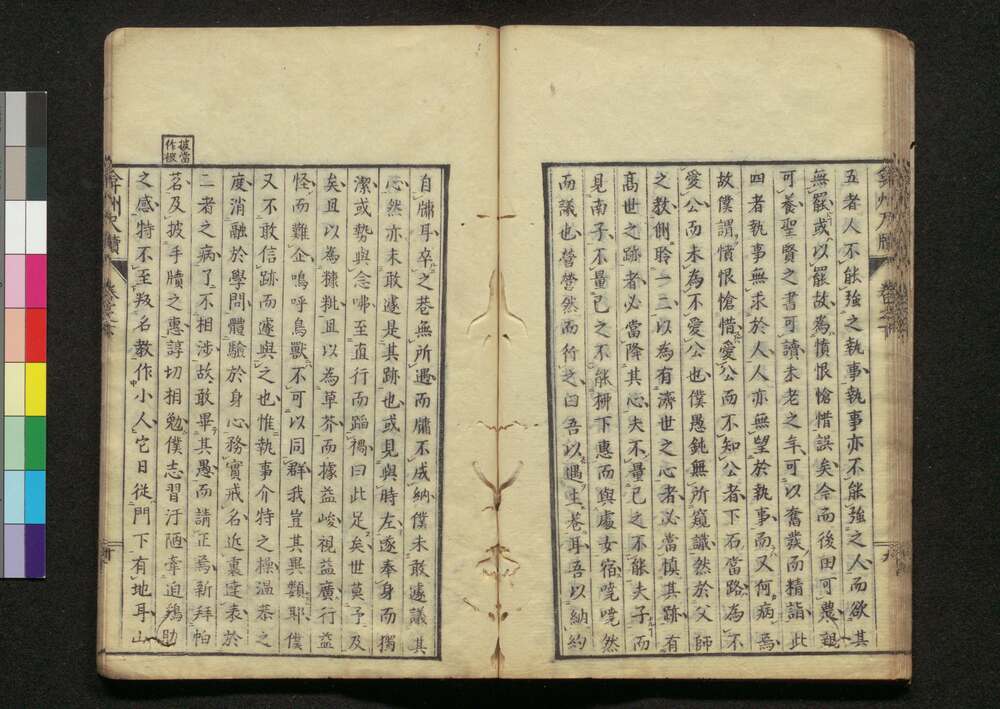 五者人不能強之執事執事亦不能強之人而欲其
無罷或以罷故為憤恨愴惜誤矣今而後田可農親
可養聖賢之書可讀未老之年可以奮發而精詣此
四者執事無求於人人亦無望於執事而又何病焉
故僕謂憤恨愴惜愛公而不知公者下石當路為不
愛公而未為不愛公也僕愚鈍無所窺識然於父師
之教側聆一二以為有濟世之心者必當慎其跡有
高世之跡者必當降其心夫不量己之不能夫子而
見南子不量己之不能柳下惠而與處女宿嘵嘵然
而議也營營然而行之曰吾以遇主巷耳吾以納約
自牖耳卒之巷無所遇而牖不成納僕未敢遽議其
心然亦未敢遽是其跡也或見與時左遂奉身而獨
潔或勢與念咈至直行而蹈禍曰此足矣世莫予及
矣且以為糠粃且以為草芥而據益峻視益廣行益
怪而難企鳴呼鳥獸不可以同群我豈其異類耶僕
又不敢信跡而遽與之也惟執事介特之操溫恭之
度消融於學問體驗於身心務實戒名近裏遠表於
二者之病了不相涉故敢畢其愚而請正焉新拜帕
茗及披手牘之惠諄切相勉僕志習汙陋牽迫鷄肋
之感特不至叛名教作小人它日從門下有地耳山
披當
作椴
弇州尺牘
卷之下
弇州尺牘
卷之下
九